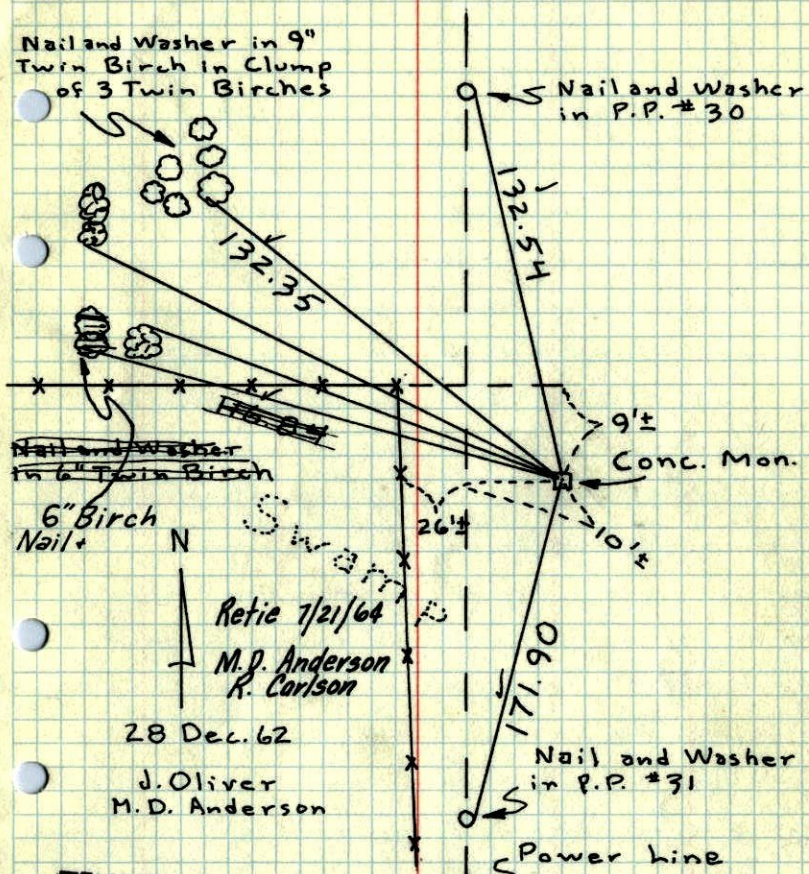 Nail and Washer in 9"
Twin Birch in Clump
of 3 Twin Birches
Nail and Washer
in P.P. # 30
132.54
132.35
9'±
Conc. Mon.
Nail and Washer
in 6" Twin Birch
6" Birch
Nail+
26'±
10'±
N
Swamp
Retie 7/21/64
M.D. Anderson
R. Carlson
171.90
28 Dec. 62
J. Oliver
M.D. Anderson
Nail and Washer
in P.P. #31
Power Line